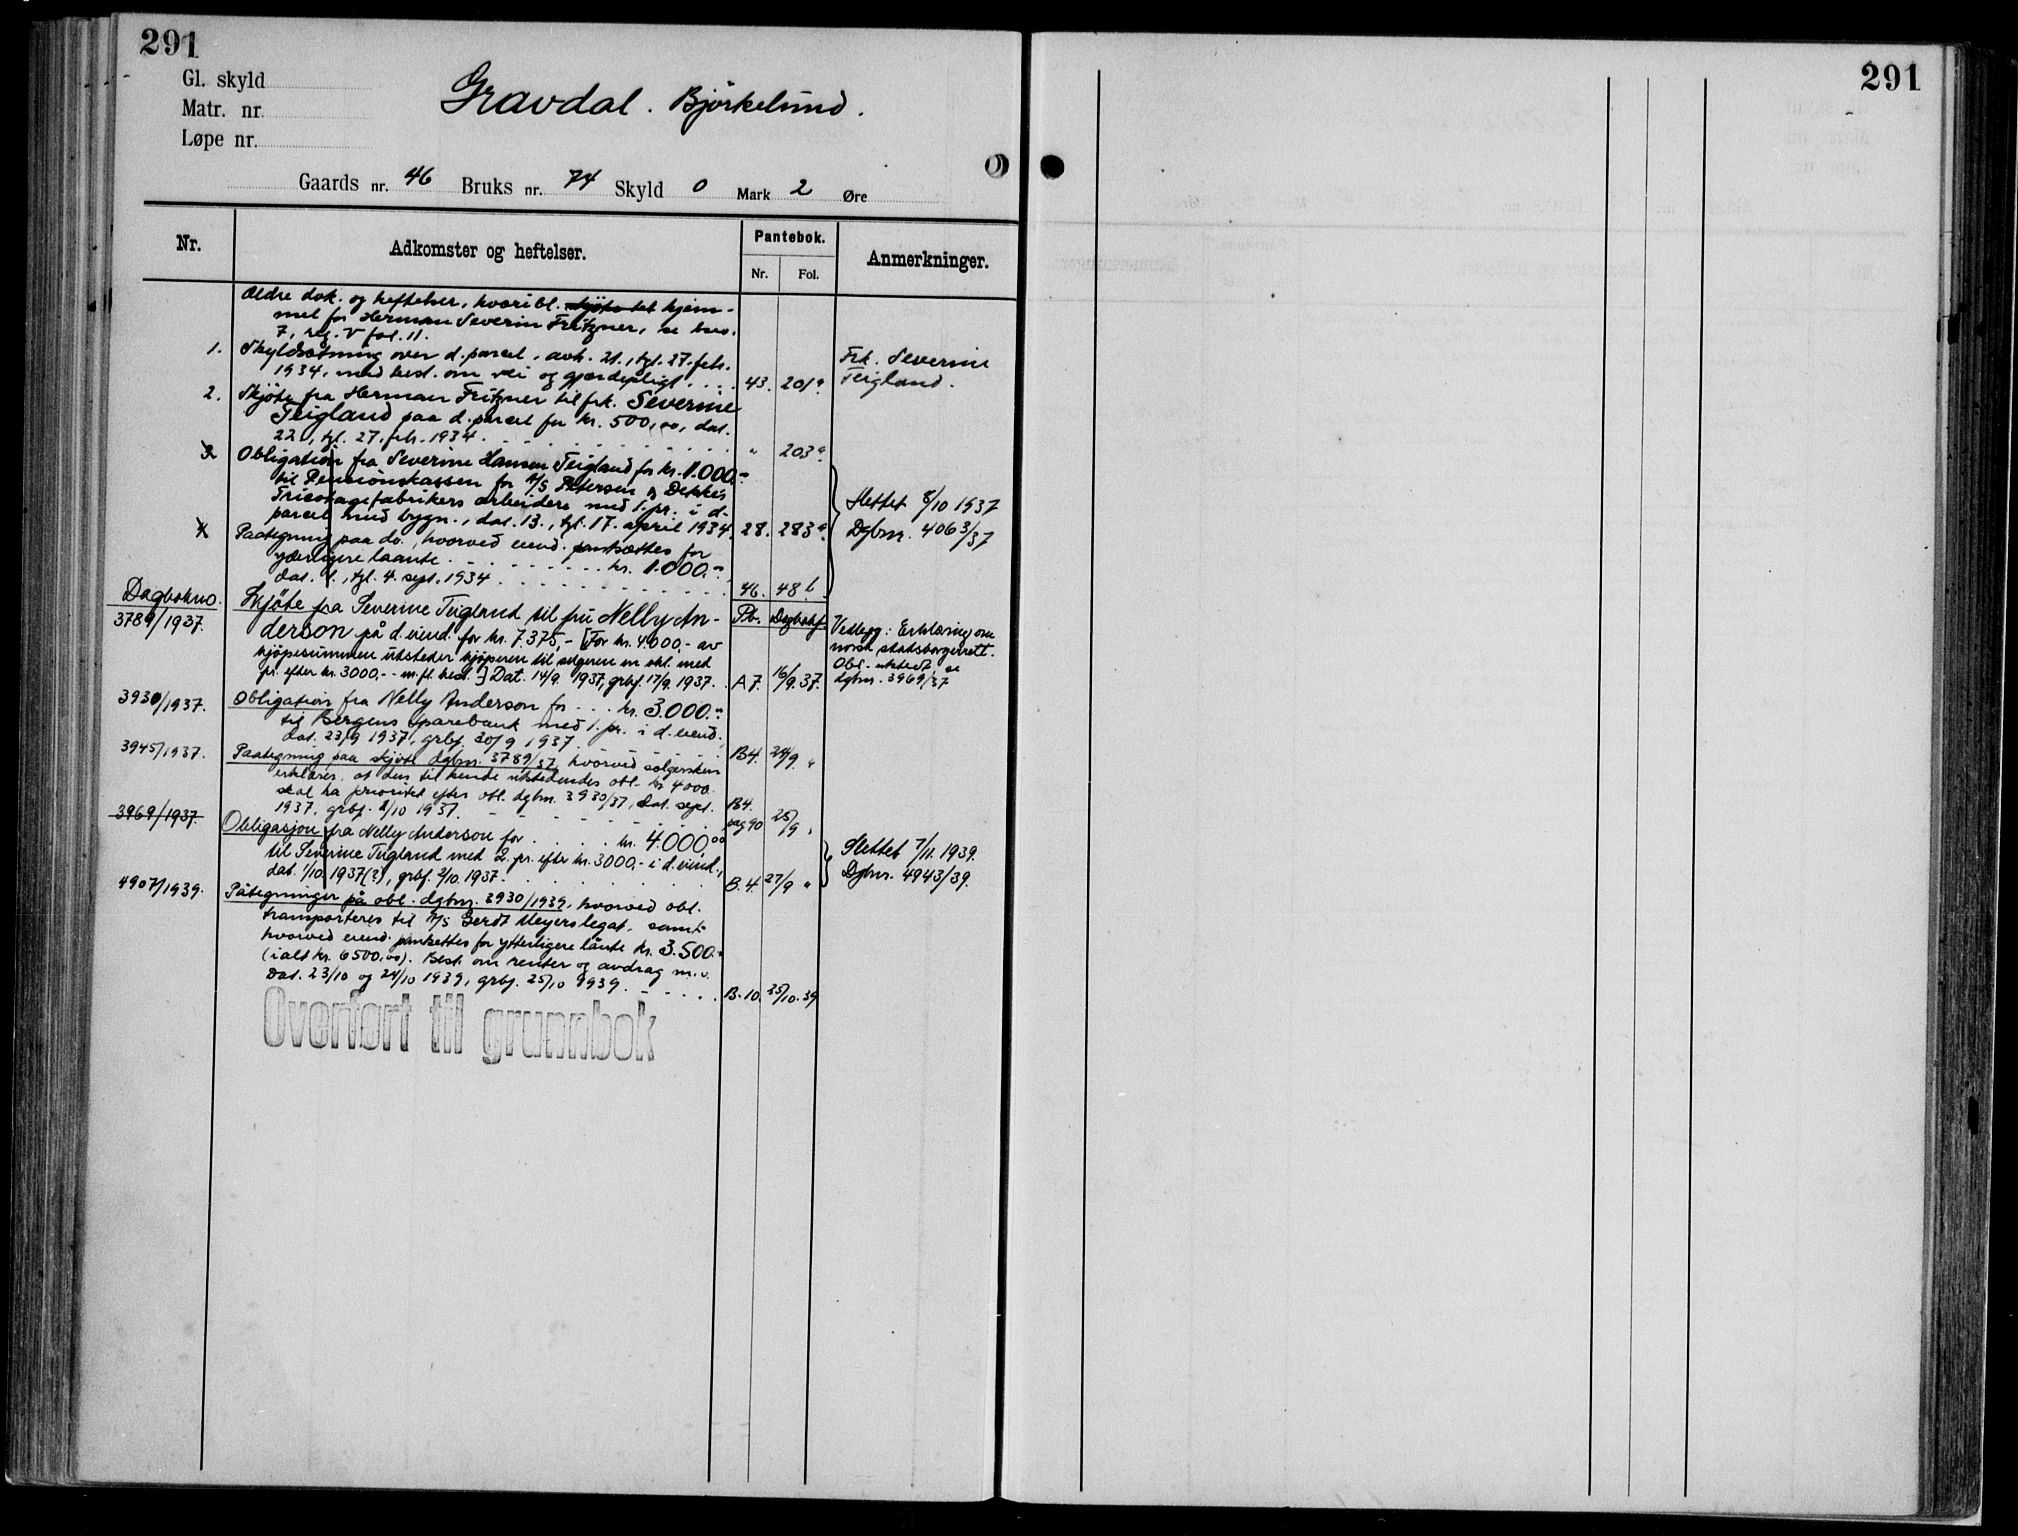 291
291
Gl. skyld
Matr. nr.
Løpe nr.
Gravdal. Bjørkelund.
Gaards nr. 46 Bruks nr. 74 Skyld 0 Mark 2 Øre
Nr. Adkomster og heftelser. Pantebok. Anmerkninger.
Nr. Fol.
Ældre dok. og heftelser, hvoribl. hjem-
mel for Herman Severin Fritzner, se bno.
7, reg. V fol. 11.
1. Skyldsætning over d. parcel, avh. 21., tgl. 27. febr.
1934, med best. om vei og gjærdepligt. . . . 43. 201a
Frk. Severine
Teigland.
2. Skjøte fra Herman Fritzner til frk. Severine
Teigland paa d. parcel for kr. 500,00, dat.
22., tgl. 27. febr. 1934. " 203a
3. Obligation fra Severine Hansen Teigland for kr. 1.000.-
til Pensionskassen for A/S Petersen & Dekkes
Tricotagefabrikers arbeidere med 1. pr. i d.
parcel med bygn., dat. 13., tgl. 17. april 1934. 28. 283a
Slettet 8/10 1937
Dgbnr. 4063/37
4. Paategning paa do., hvorved eiend. pantsættes for
yderligere laante . . . . . . . kr. 1.000.-
dat. 1., tgl. 4. sept. 1934 . . . . . . 46. 48b
Dagbokno. Pb. Dagbokf.
3789/1937. Skjøte fra Severine Teigland til fru Nelly An-
derson på d. eiend. for kr. 7375,- [For kr. 4.000,- av
kjøpesummen utsteder kjøperen til selgeren en obl. med
pr. efter kr. 3000,- - m. fl. best.] Dat. 14/9 1937, grbf. 17/9 1937. A 7. 16/9. 37.
Vedlegg: Erklæring om
norsk statsborgerrett.
Obl. utstedt, se
dgbnr. 3969/37
3930/1937. Obligation fra Nelly Anderson for . . . kr. 3.000.-
til Bergens Sparebank med 1. pr. i d. eiend.,
dat. 23/9 1937, grbf. 30/9 1937. B4. 24/9. "
3945/1937. Paategning paa skjøte dgbnr. 3789/37, hvorved sælgersken
erklærer, at den til hende utstedendes obl. kr 4000.
skal ha prioritet efter obl. dgbnr. 3930/37, dat. sept.
1937, grbf. 2/10 1937. B4. pag 90 25/9 "
3969/1937. Obligasjon fra Nelly Anderson for . . . . kr. 4.000,00
til Severine Teigland med 2. pr. efter kr. 3000,- i d. eiend.,
dat. 1/10 1937(?), grbf. 2/10. 1937. B. 4. 27/9 "
Slettet 7/11. 1939.
Dgbnr. 4943/39.
4907/1939. Påtegninger på obl. dgbnr. 3930/1939, hvorved obl.
transporteres til A/S Gerdt Meyers legat, samt
hvorved eiend. pantsettes for ytterligere lånte kr. 3.500.-
(ialt kr. 6500,00). Best. om renter og avdrag m.v.
Dat. 23/10 og 24/10 1939, grbf. 25/10 1939. B. 10. 25/10. 39
Overført til grunnbok